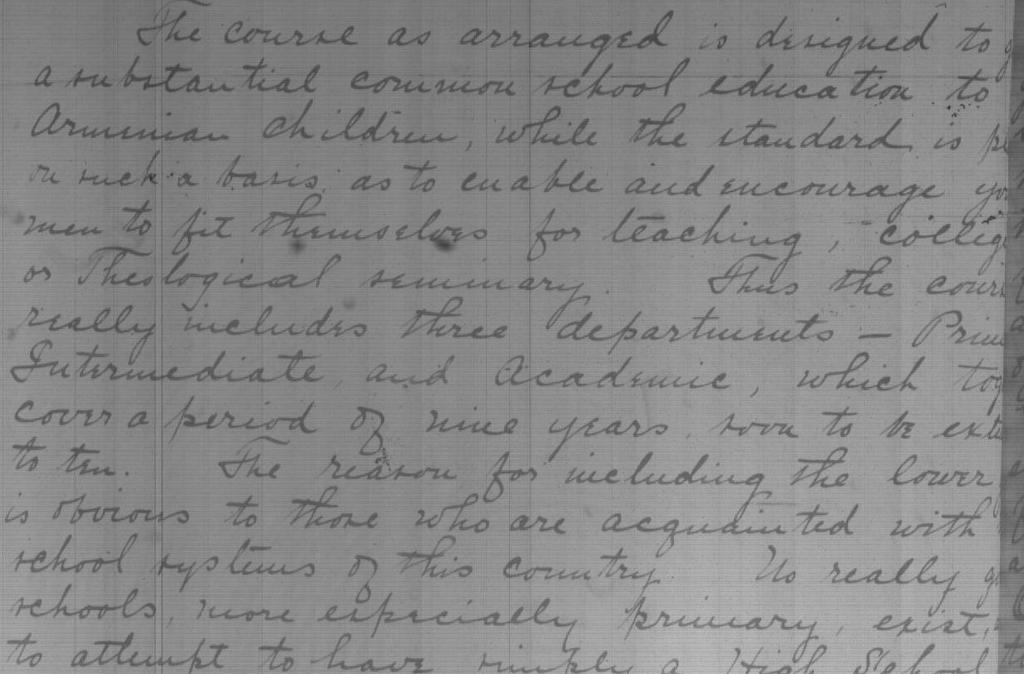 The course as arranged is designed to g
a substantial common school education to
Armenian children, while the standard is p
on such a basis, as to enable and encourage yo
men to fit themselves for teaching, colleg
or Theological seminary. Thus the cours
really includes three departments — Prim
Intermediate, and Academic, which tog
cover a period of nine years, soon to be exte
to ten. The reason for including the lower
is obvious to those who are acquainted with
school systems of this country. No really g
schools, more especially primary, exist,
to attempt to have simply a High School